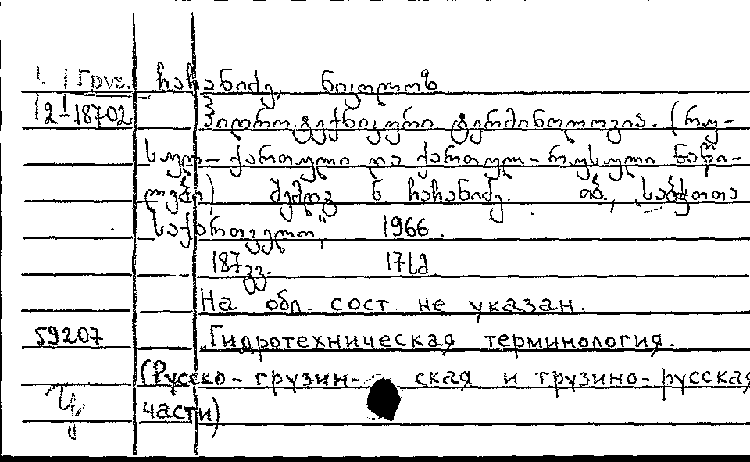 Груз. ჩაჩანიძე, ნიკოლოზ
12-18702 ჰიდროტექნიკური ტერმინოლოგია. (რუ-
სულ-ქართული და ქართულ-რუსული ნაწი-
ლები) შემდგ ნ ჩაჩანიძე. თბ., საბჭოთა
საქართველო, 1966.
187 გვ. 17სმ
На обл. сост. не указан.
59207 Гидротехническая терминология.
(Русско-грузин- ская и грузино-русская
части)